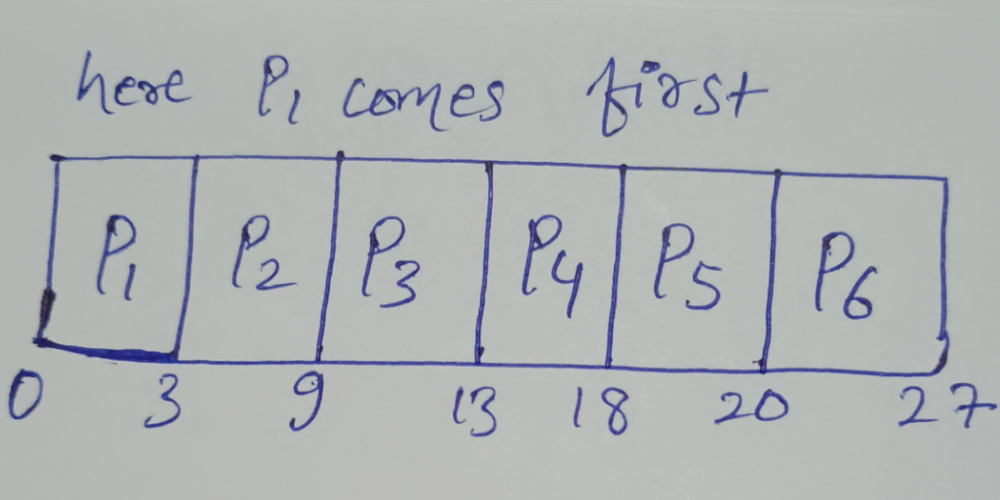 here P1 comes first
P1 P2 P3 P4 P5 P6
0 3 9 13 18 20 27